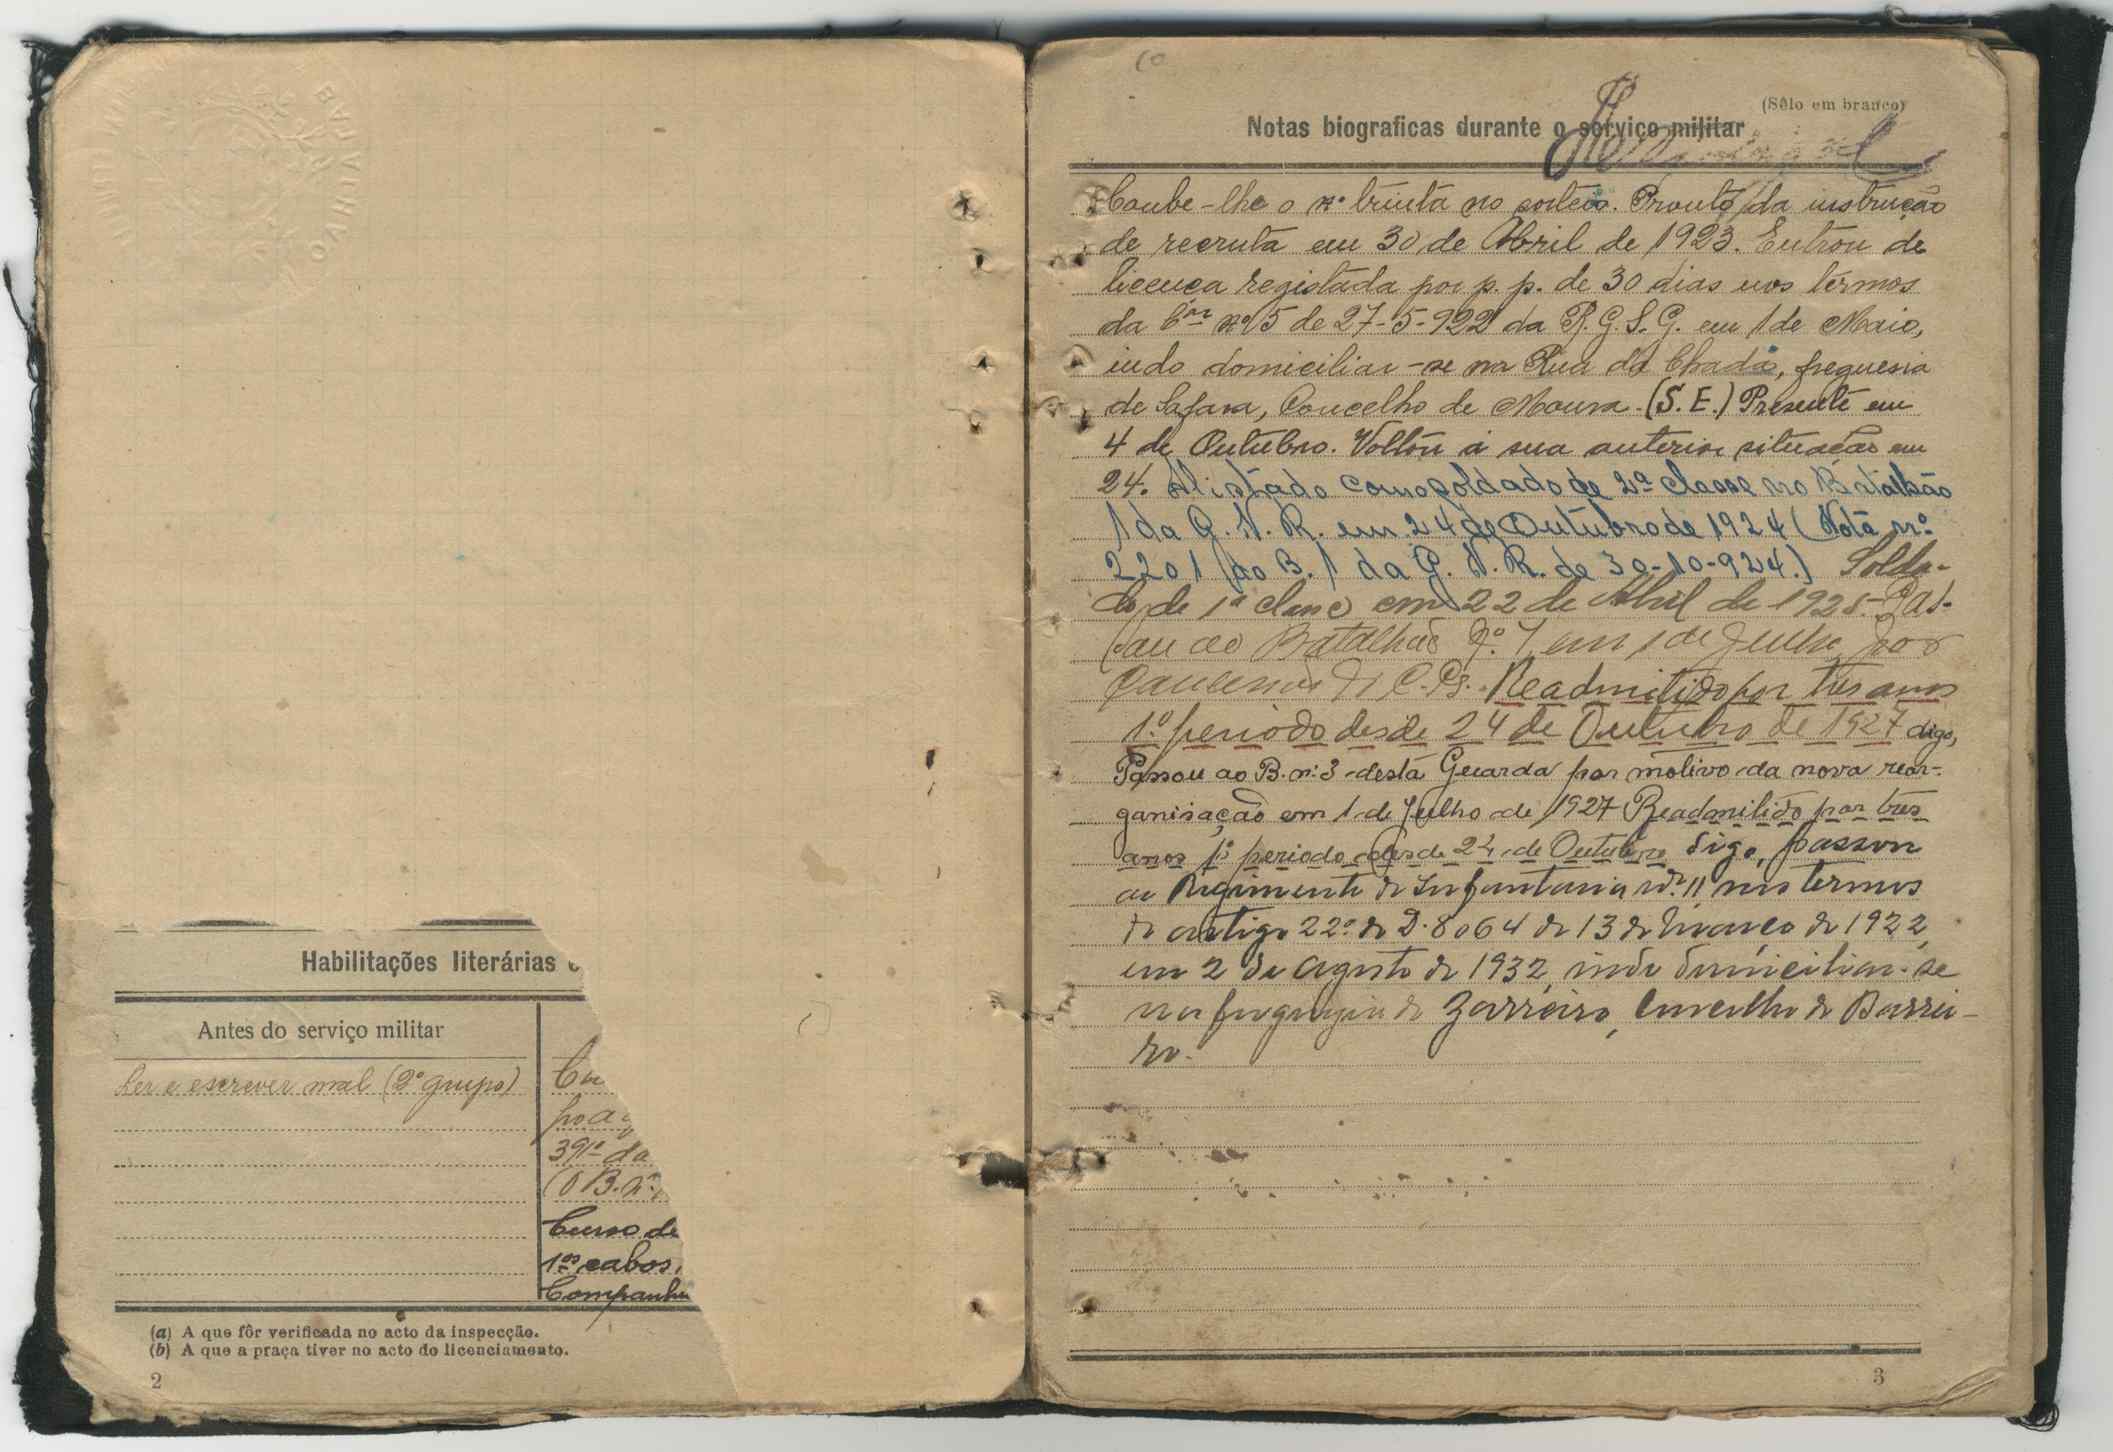 Habilitações literárias
Antes do serviço militar
Ler e escrever mal (2º grupo)
391º da
(O B. nº
Curso de
1ºs cabos,
Companhi
(a) A que fôr verificada no acto da inspecção.
(b) A que a praça tiver no acto do licenciamento.
2
(Sêlo em branco)
Notas biograficas durante o serviço militar
Coube-lhe o nº trinta no sorteio. Pronto da instrução
de recruta em 30 de Abril de 1923. Entrou de
licença registada por p. p. de 30 dias nos têrmos
da Cªr nº 5 de 27-5-922 da R. G. S. G. em 1 de Maio,
indo domiciliar-se na Rua da Chada, freguesia
de Safara, Concelho de Moura. (S. E.) Presente em
4 de Outubro. Voltou á sua anterior situação em
24. Alistado como soldado de 2ª classe no Batalhão
1 da G. N. R. em 24 de Outubro de 1924 (Nota nº
2201 do B. 1 da G. N. R. de 30-10-924.) Solda-
do de 1ª classe em 22 de Abril de 1925. Pas-
sou ao Batalhão nº em 1 de Julho por
Readmitido por três anos
1.º periodo desde 24 de Outubro de 1927 digo,
Passou ao B. nº 3 desta Guarda por motivo da nova reor-
ganisação em 1 de Julho de 1927 Readmitido por tres
anos 1º periodo desde 24 de Outubro digo, passou
ao Regimento de Infantaria nº 11 nos termos
do artigo 22º do D. 8064 de 13 de Março de 1922,
em 2 de Agosto de 1932, indo domiciliar-se
na freguezia do Barreiro, Concelho do Barrei-
ro.
3